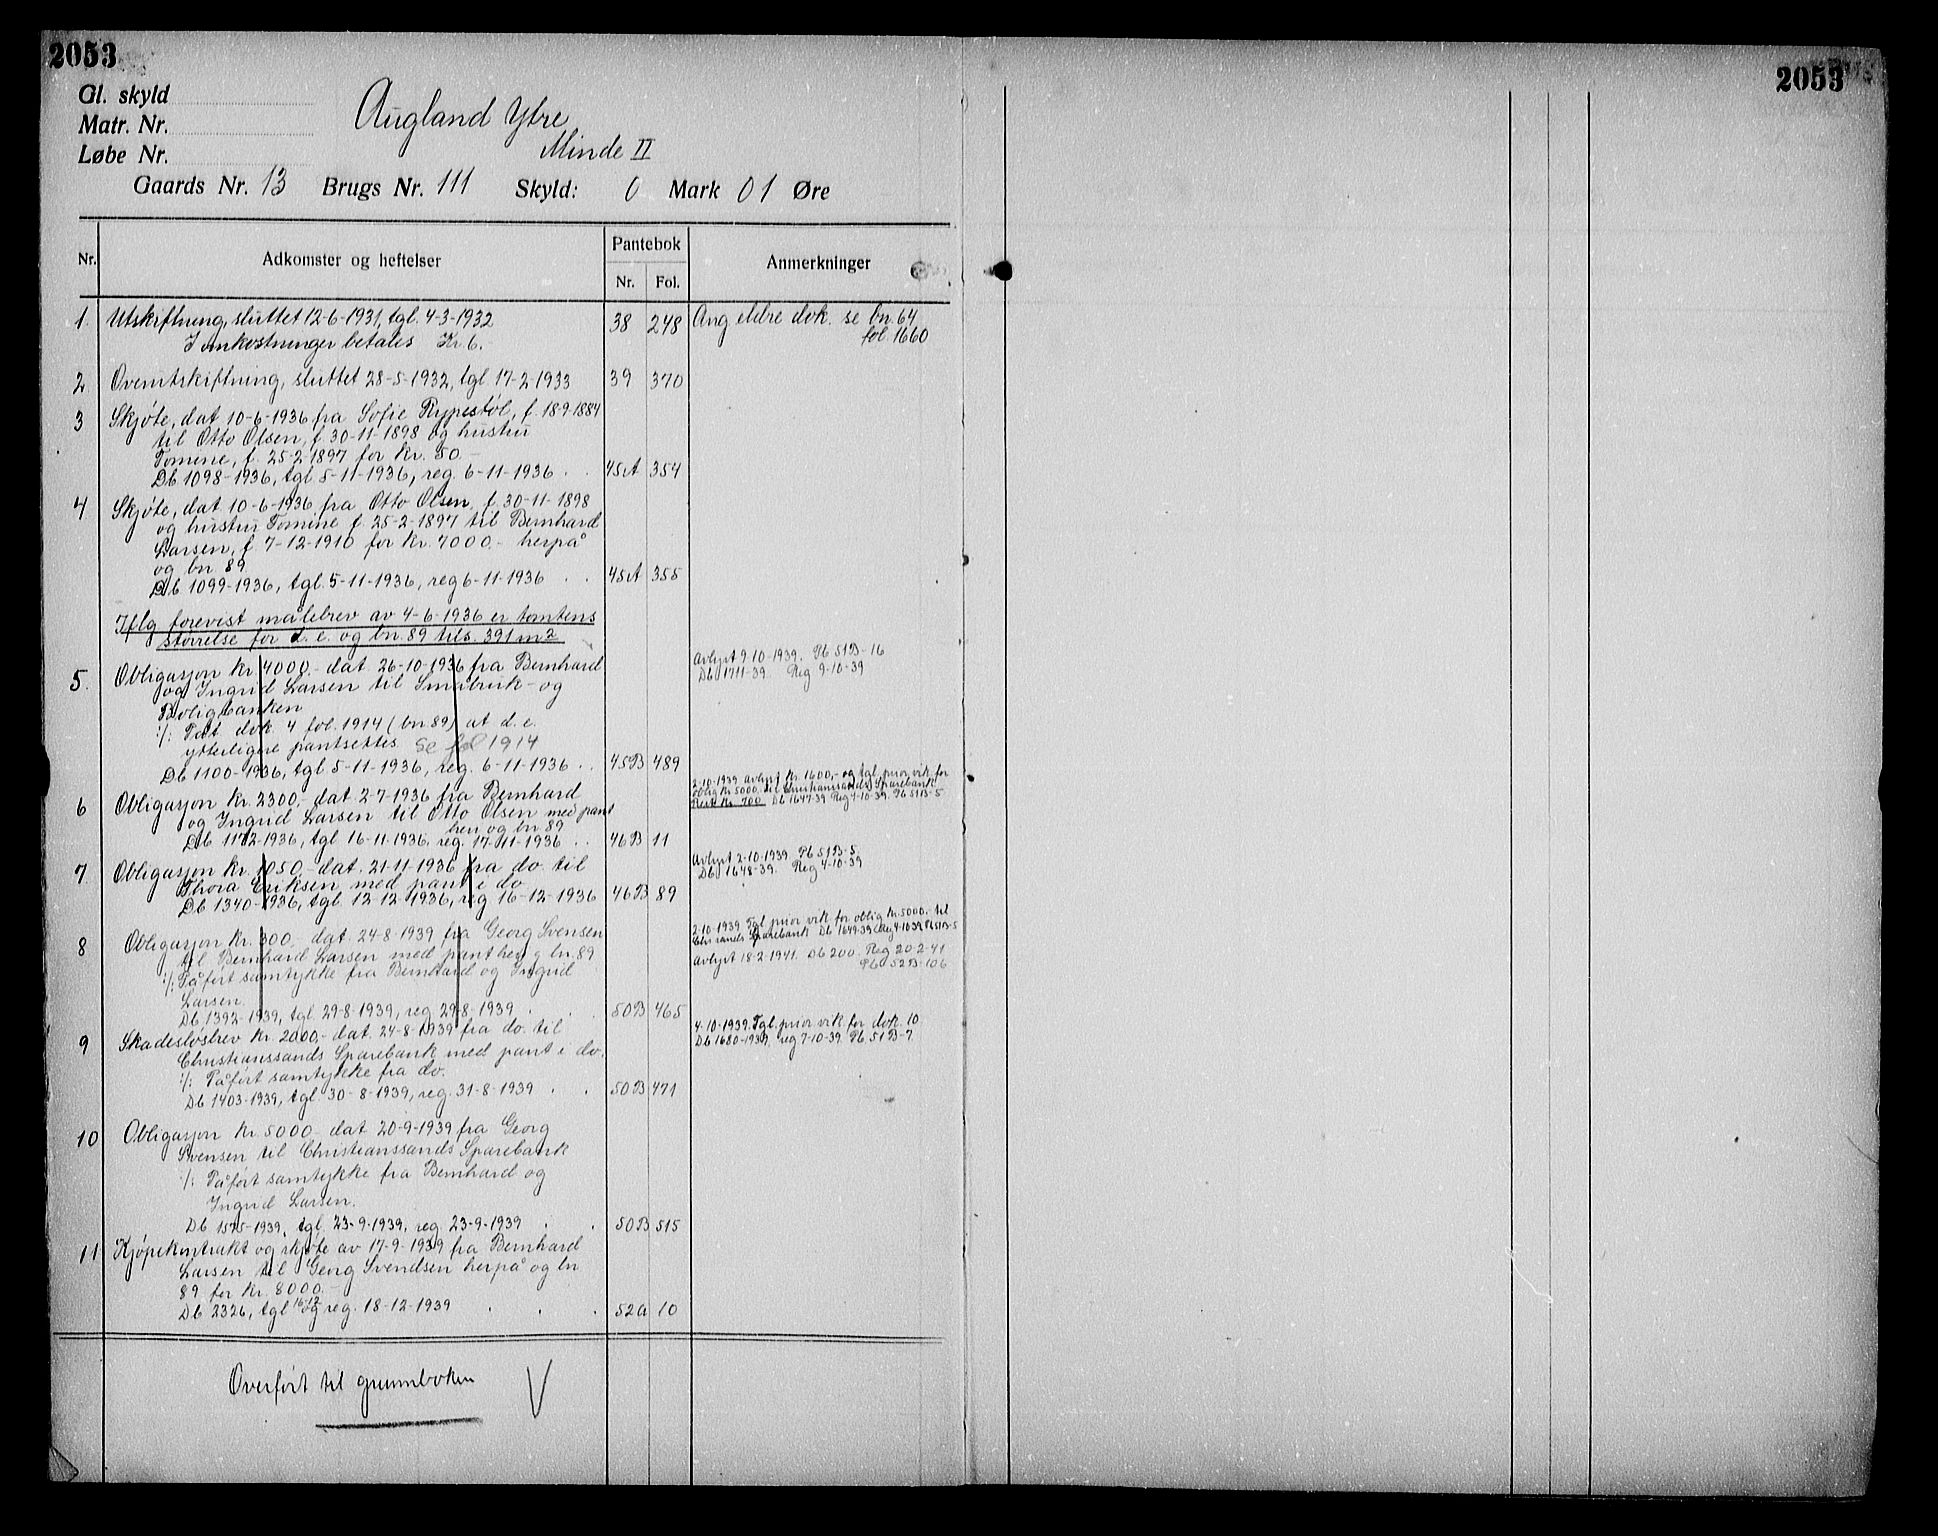 2053
2053
Gl. skyld
Matr. Nr.
Løbe Nr.
Augland Ytre
Minde II
Gaards Nr. 13 Brugs Nr. 111 Skyld: 0 Mark 01 Øre
Nr. Adkomster og heftelser Pantebok Anmerkninger
Nr. Fol.
1. Utskiftning, sluttet 12-6-1931, tgl. 4-3-1932 38 248 Ang eldre dok. se bn. 64
I omkostninger betales Kr. 6.- fol. 1660
2 Overutskiftning, sluttet 28-5-1932, tgl. 17-2-1933 39 370
3 Skjøte, dat 10-6-1936 fra Sofie Rypestøl, f. 18-9-1884
til Otto Olsen, f. 30-11-1898 og hustru
Tomine, f. 25-2-1897 for kr. 50.-
Db 1098-1936, tgl 5-11-1936, reg. 6-11-1936 . . 45A 354
4 Skjøte, dat 10-6-1936 fra Otto Olsen, f. 30-11-1898
og hustru Tomine f. 25-2-1897 til Bernhard
Larsen, f. 7-12-1910 for kr. 7000.- herpå
og bn 89
Db 1099-1936, tgl. 5-11-1936, reg 6-11-1936 . . 45A 355
Iflg forevist målebrev av 4-6-1936 er tomtens
størrelse for d. e. og bn. 89 tils. 391 m2
5. Obligasjon kr. 4000.- dat. 26-10-1936 fra Bernhard
og Ingrid Larsen til Småbruk- og
Boligbanken
:/: Påt dok 4 fol. 1914 (bn 89) at d. e.
ytterligere pantsettes se fol 1914
Db 1100-1936, tgl. 5-11-1936, reg. 6-11-1936 . . 45B 489
Avlyst 9-10-1939. Pb 51B-16
Db 1711-39. Reg 9-10-39
6 Obligasjon kr. 2300,- dat. 2-7-1936 fra Bernhard
og Ingrid Larsen til Otto Olsen med pant
her og bn 89
Db 1172-1936, tgl 16-11-1936, reg. 17-11-1936 . . 46B 11
2-10-1939 avlyst kr. 1600,- og tgl. prior. vik for
oblig kr 5000. til Christianssands Sparebank
Rest kr. 700 Db 1647-39 Reg 4-10-39. Pb 51B-5
7. Obligasjon kr. 1050.- dat. 21-11-1936 fra do. til
Thora Eriksen med pant i do
Db 1340-1936, tgl. 12-12-1936, reg 16-12-1936 46B 89
Avlyst 2-10-1939 Pb 51B-5
Db 1648-39. Reg 4-10-39
8 Obligasjon kr. 300,- dat. 24-8-1939 fra Georg Svensen
til Bernhard Larsen med pant her og bn. 89
:/: Påført samtykke fra Bernhard og Ingrid
Larsen.
Db 1392-1939, tgl. 29-8-1939, reg. 29-8-1939 . . 50B 465
2-10-1939 Tgl. prior vik for oblig kr. 5000.- til
Chr.sands Sparebank Db 1649-39 Reg 4-10-39 Pb 51B-5
Avlyst 18-2-1941. Db 200. Reg 20-2-41
Pb 52B-106
9 Skadesløsbrev kr. 2000,- dat. 24-8-1939 fra do. til
Christianssands Sparebank med pant i do.
:/: Påført samtykke fra do.
Db 1403-1939, tgl 30-8-1939, reg. 31-8-1939 . . 50B 471
4-10-1939. Tgl. prior vik for dok. 10
Db 1680-1939, reg 7-10-39 Pb 51B-7
10 Obligasjon kr. 5000.- dat 20-9-1939 fra Georg
Svensen til Christianssands Sparebank
:/: Påført samtykke fra Bernhard og
Ingrid Larsen.
Db 1575-1939, tgl. 23-9-1939, reg. 23-9-1939 . . 50B 515
11 Kjøpekontrakt og skjøte av 17-9-1939 fra Bernhard
Larsen til Georg Svendsen herpå og bn
89 for kr. 8000.-
Db 2326, tgl 16-12 og reg. 18-12-1939 . . . 52a 10
Overført til grunnboken V